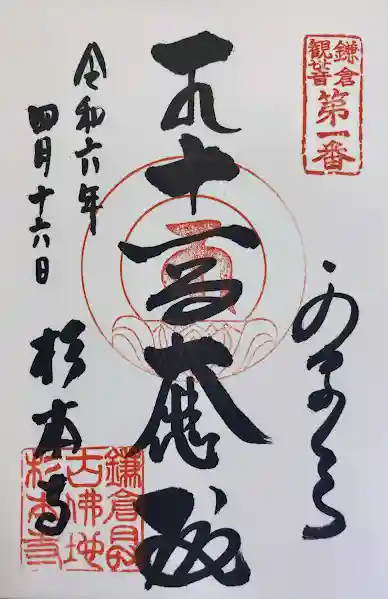 鎌倉
観世音
第一番
十一面大悲殿
令和六年
四月十六日
杉本寺
鎌倉最
古佛地
杉本寺